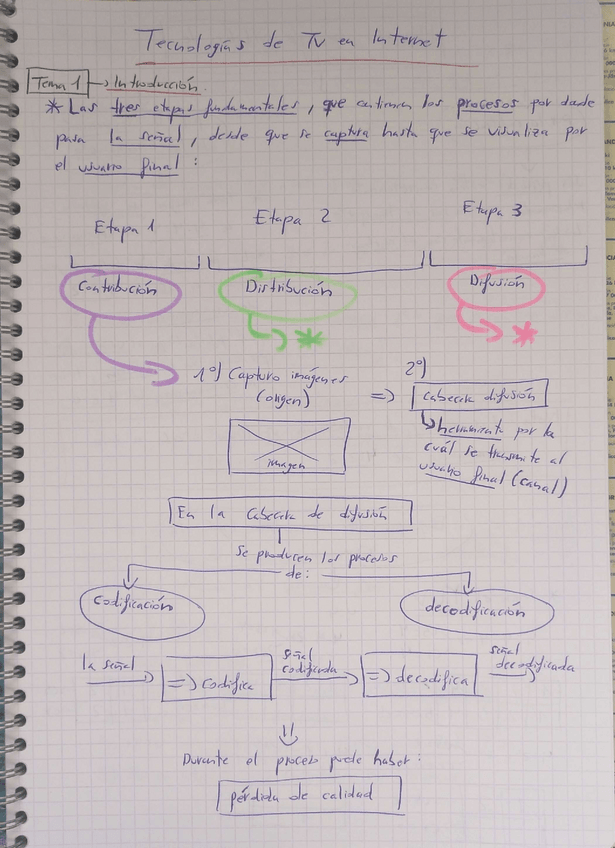 Tecnologías de Tv en Internet
Tema 1 → Introducción.
* Las tres etapas fundamentales, que contienen los procesos por donde
pasa la señal, desde que se captura hasta que se visualiza por
el usuario final:
Etapa 1 Etapa 2 Etapa 3
Contribución Distribución Difusión
* *
1º) Capturo imágenes
(origen)
imagen
=> 2º)
cabecera difusión
herramienta por la
cuál se transmite al
usuario final (canal)
En la cabecera de difusión
se producen los procesos
de:
codificación decodificación
la señal => codifica señal codificada => decodifica señal decodificada
Durante el proceso puede haber:
pérdida de calidad